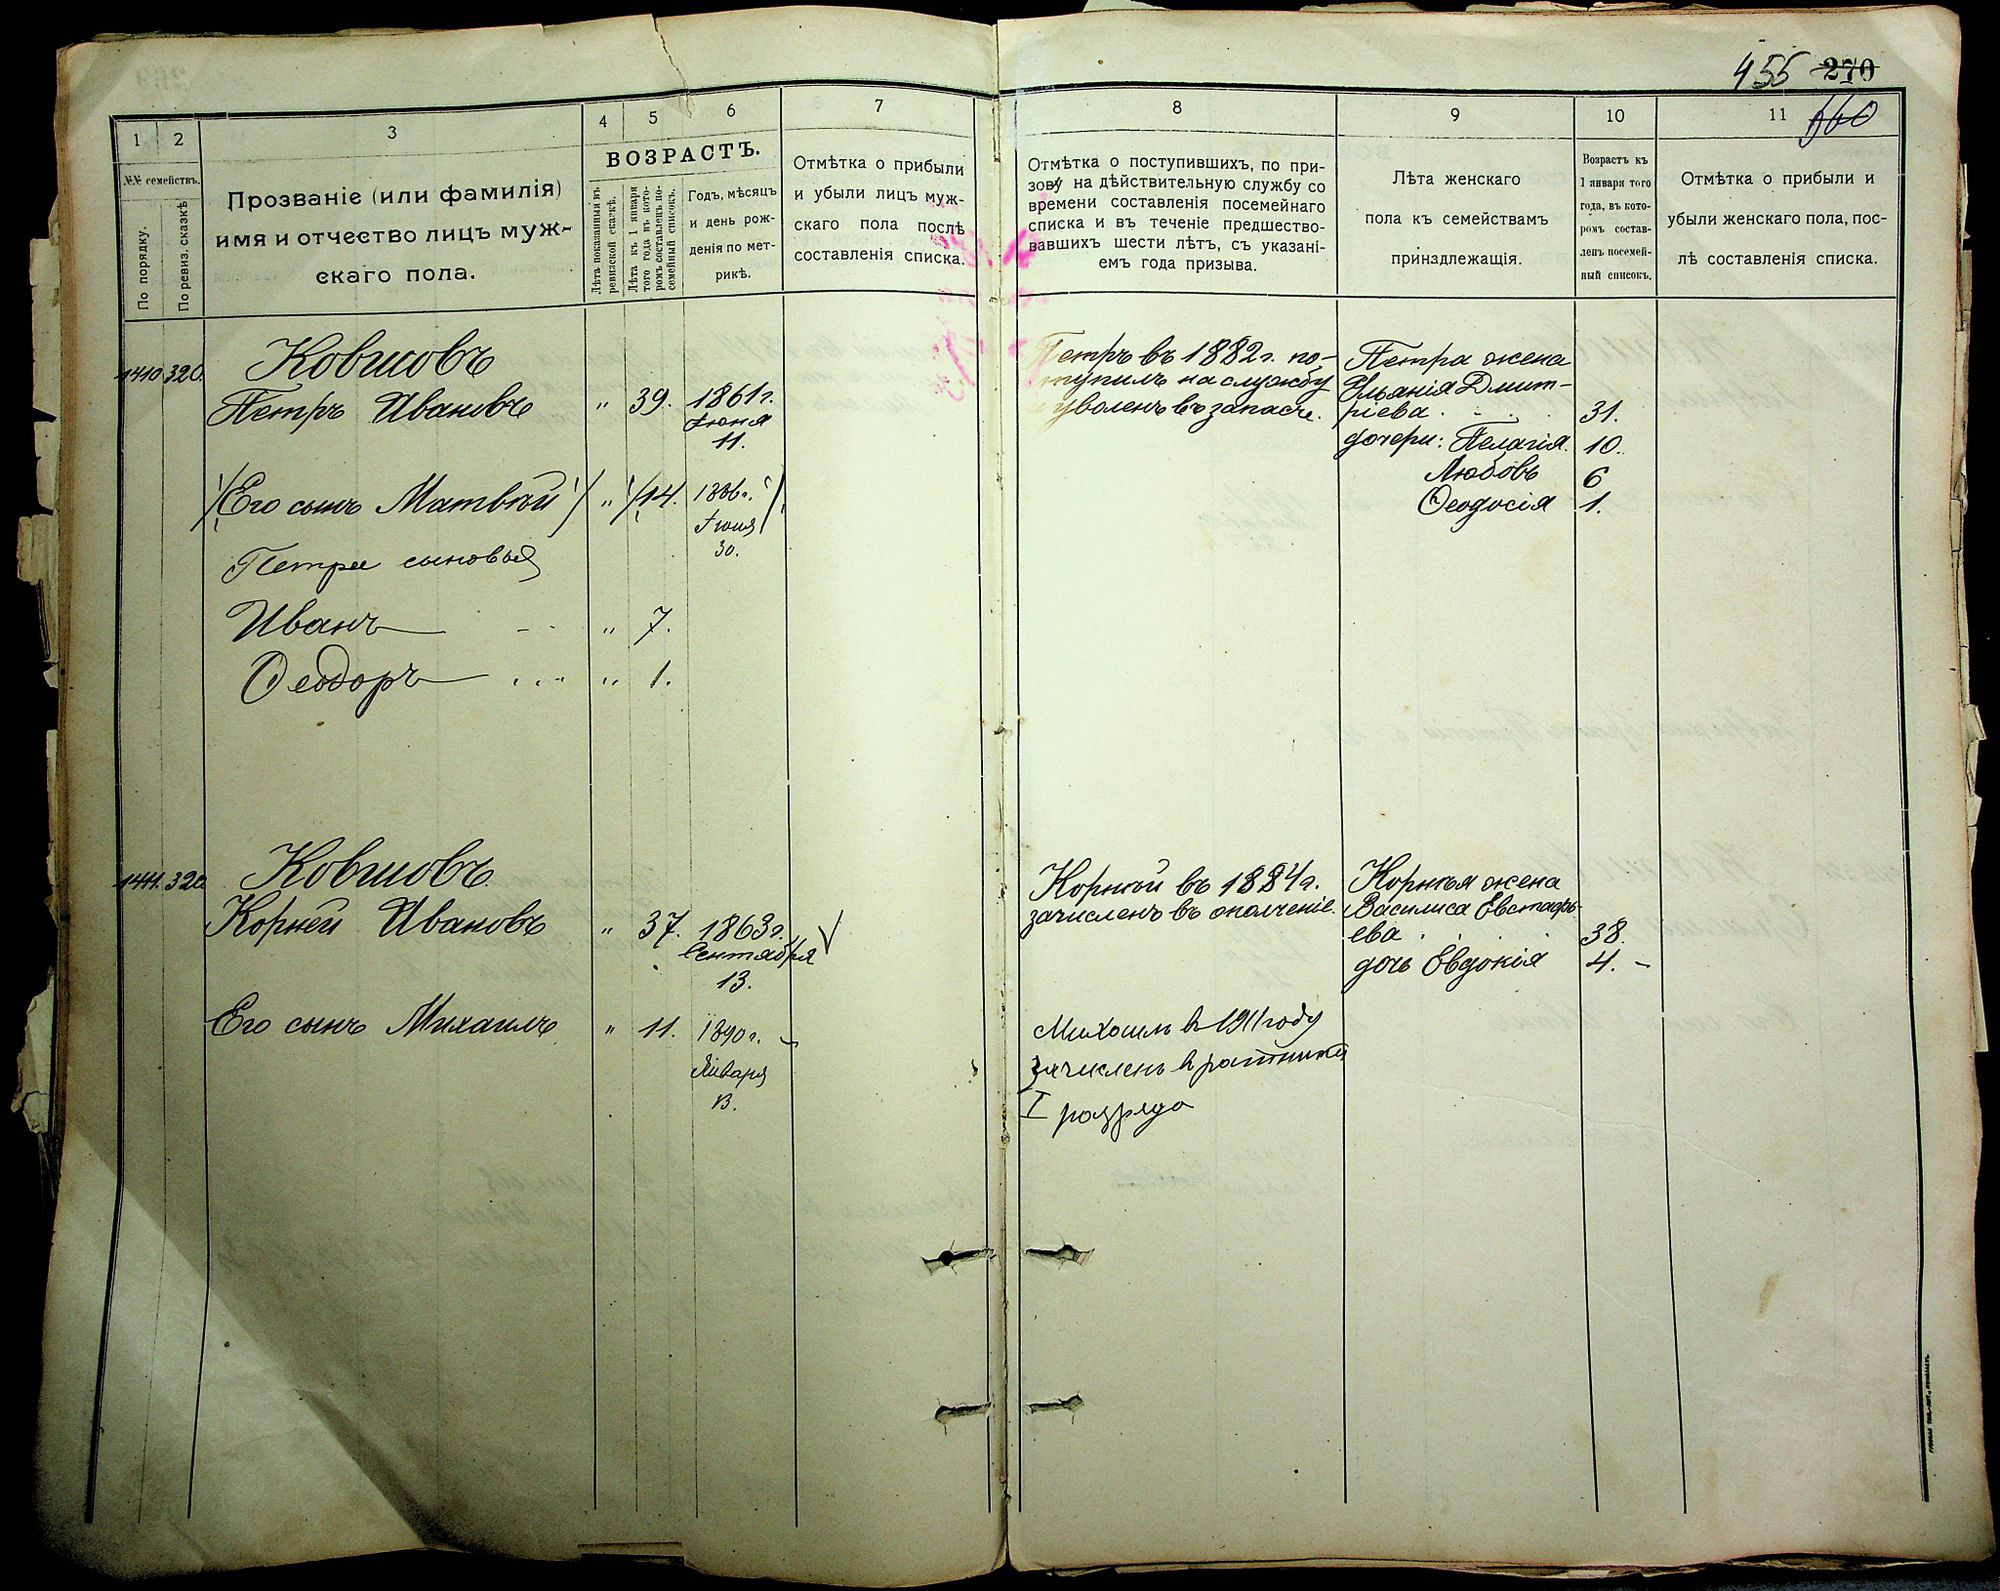 455 270
660
1 2 3 4 5 6 7 8 9 10 11
№№ семействъ.
По порядку.
По ревиз. сказкѣ
Прозваніе (или фамилія)
имя и отчество лицъ муж-
скаго пола.
ВОЗРАСТЪ.
Лѣта показанныя въ
ревизской сказкѣ.
Лѣта къ 1 января
того года въ кото-
ромъ составленъ по-
семейный списокъ.
Годъ, мѣсяцъ
и день рож-
денія по мет-
рикѣ.
Отмѣтка о прибыли
и убыли лицъ муж-
скаго пола послѣ
составленія списка.
Отмѣтка о поступившихъ, по при-
зову на дѣйствительную службу со
времени составленія посемейнаго
списка и въ теченіе предшество-
вавшихъ шести лѣтъ, съ указані-
емъ года призыва.
Лѣта женскаго
пола къ семействамъ
принздлежащія.
Возрастъ къ
1 января того
года, въ кото-
ромъ состав-
ленъ посемей-
ный списокъ.
Отмѣтка о прибыли и
убыли женскаго пола, пос-
лѣ составленія списка.
1410 320. Ковшовъ
Петръ Ивановъ " 39. 1861 г.
Іюня
11.
(Его сынъ Матвѣй) " (14. 1886 г.)
Іюня
30.
Петра сыновья
Иванъ " 7.
Ѳеодоръ " 1.
Петръ въ 1882 г. по-
ступилъ на службу
уволенъ въ запасъ.
Петра жена
Ульянія Дмит-
ріева 31.
дочери: Пелагія. 10.
Любовь 6
Ѳеодосія 1.
1411. 320 Ковшовъ
Корнѣй Ивановъ " 37. 1863 г.
Сентября
13.
Его сынъ Михаилъ " 11. 1890 г.
Января
13.
Корнѣй въ 1884 г.
зачисленъ въ ополченіе.
Корнѣя жена
Василиса Евстафь-
ева 38.
дочь Евдокія 4. –
Михаилъ в 1911 году
зачисленъ в ратники
I разряда